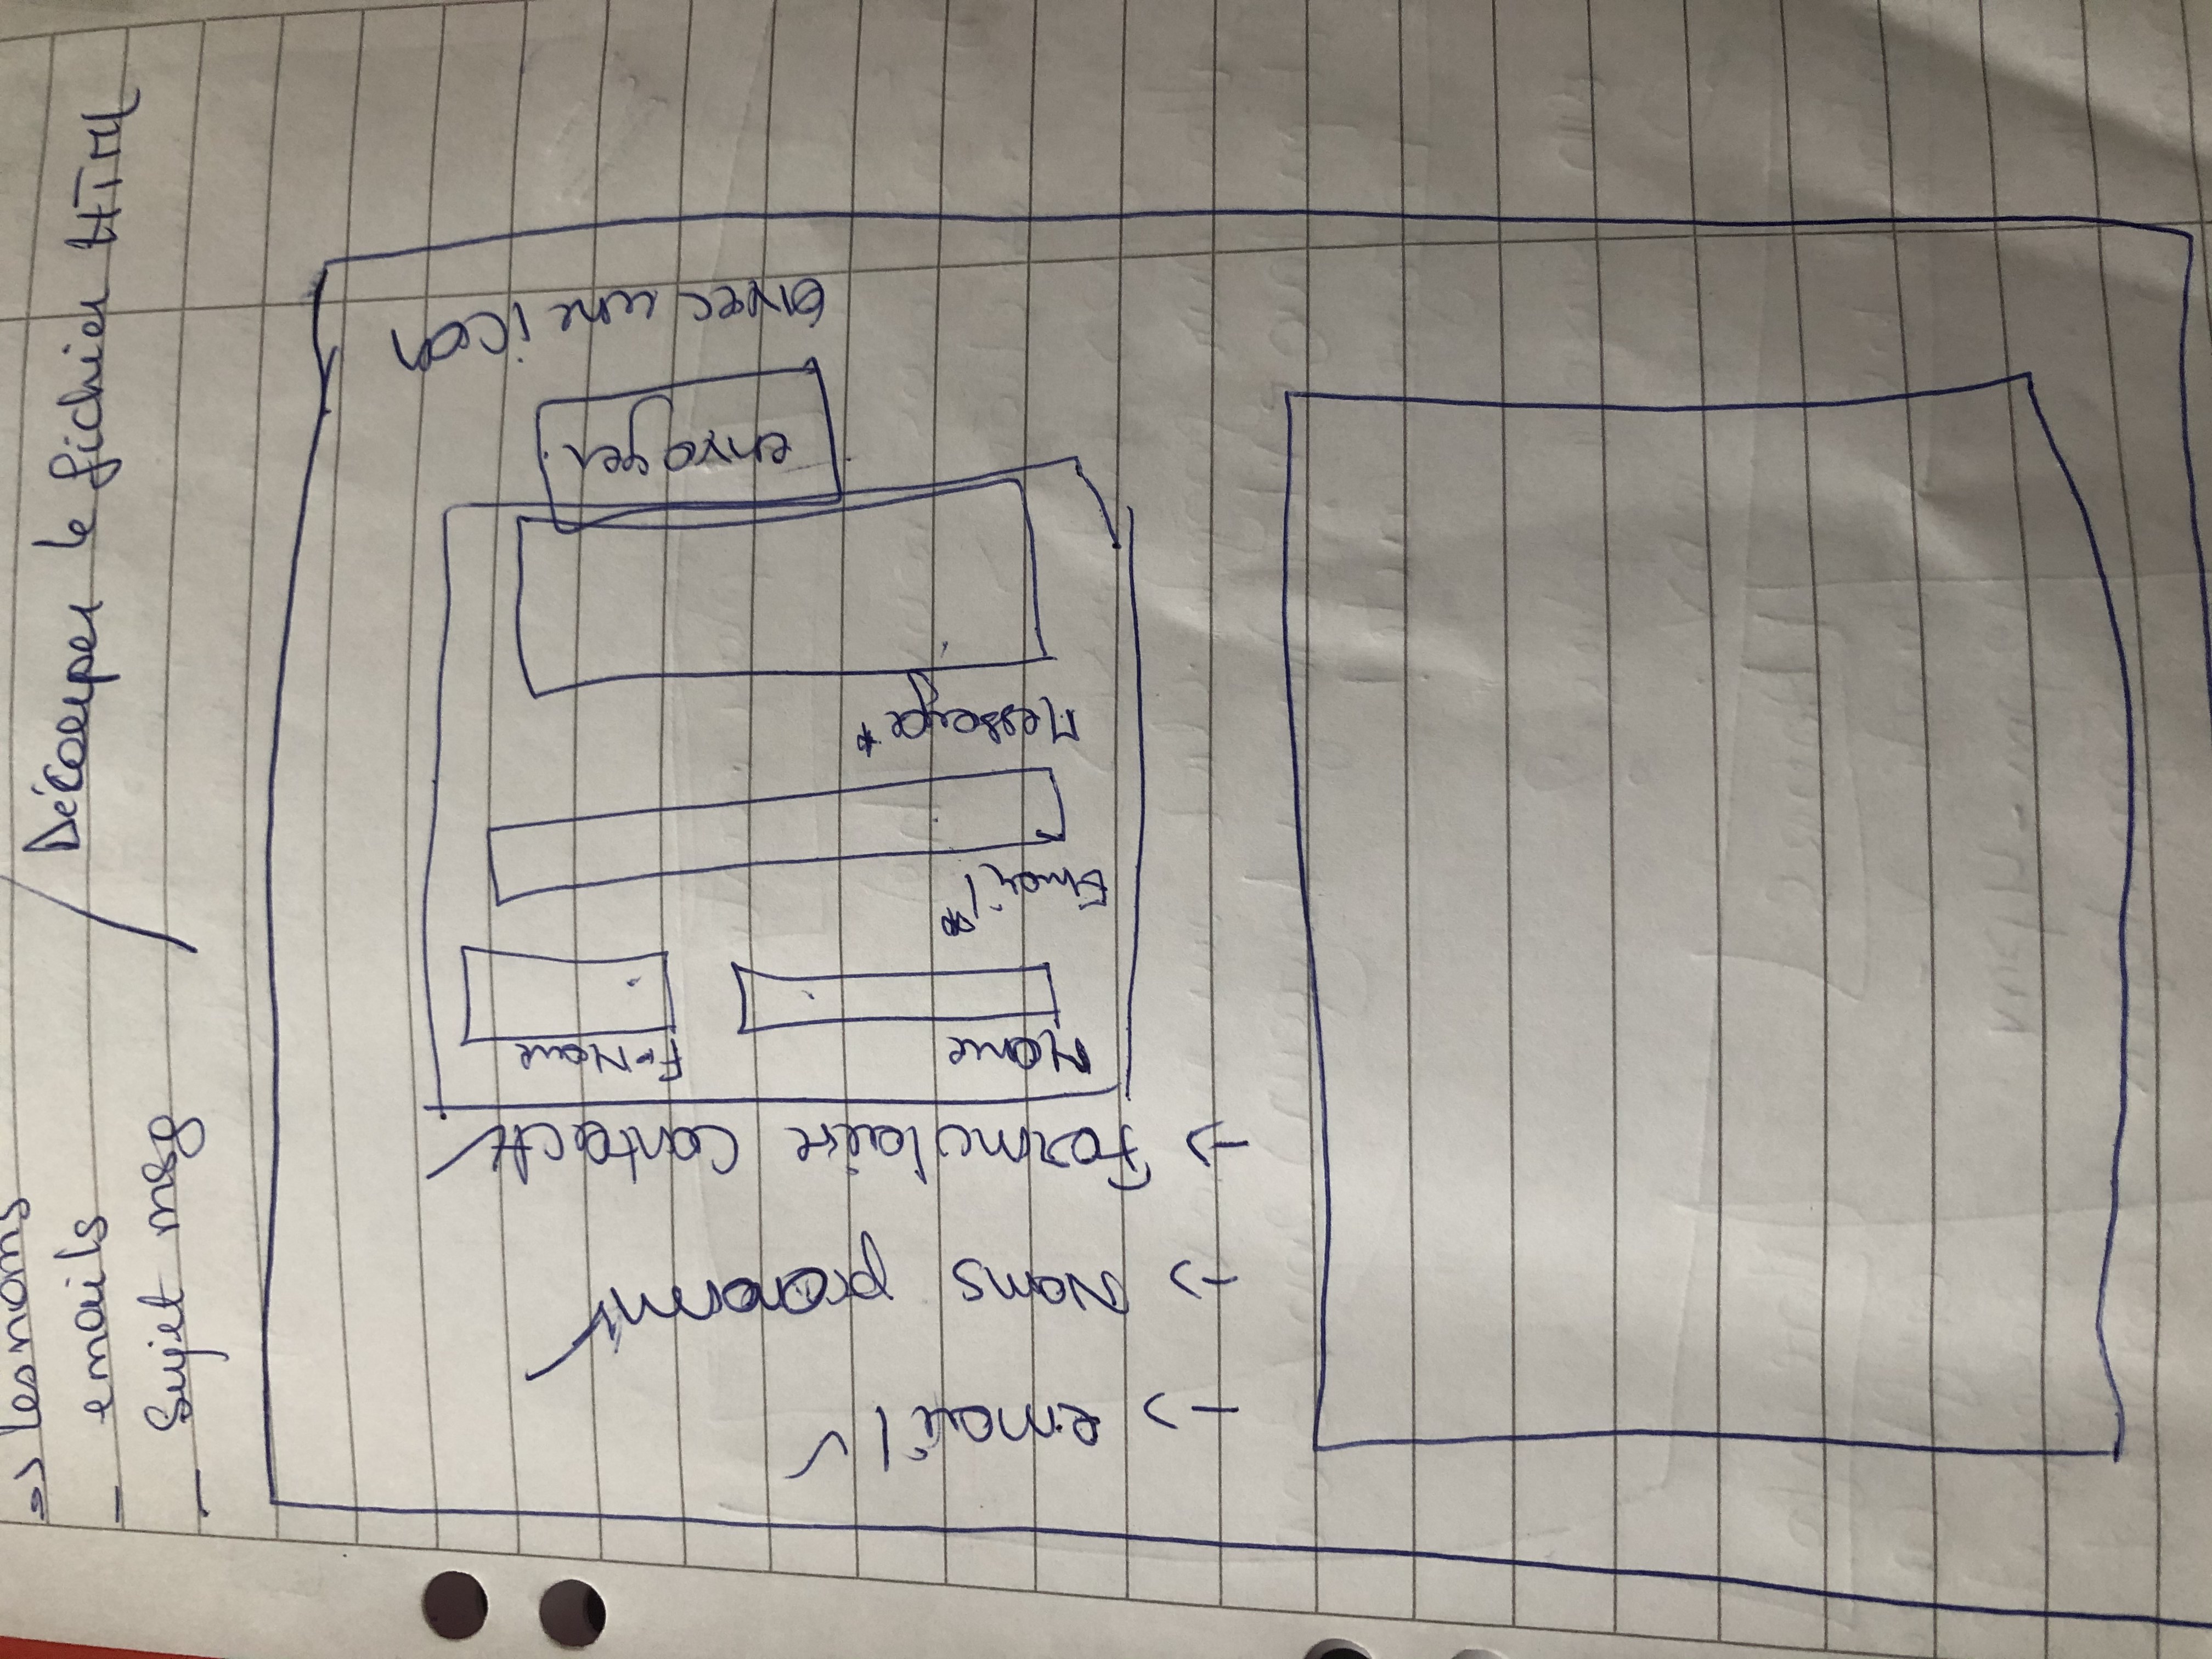 => les noms
- emails
- Sujet msg
Découper le fichier HTML
-> email ✓
-> Noms prenom ✓
-> Formulaire Contact ✓
Name F-Name
Email*
Message*
envoyer
avec une icon